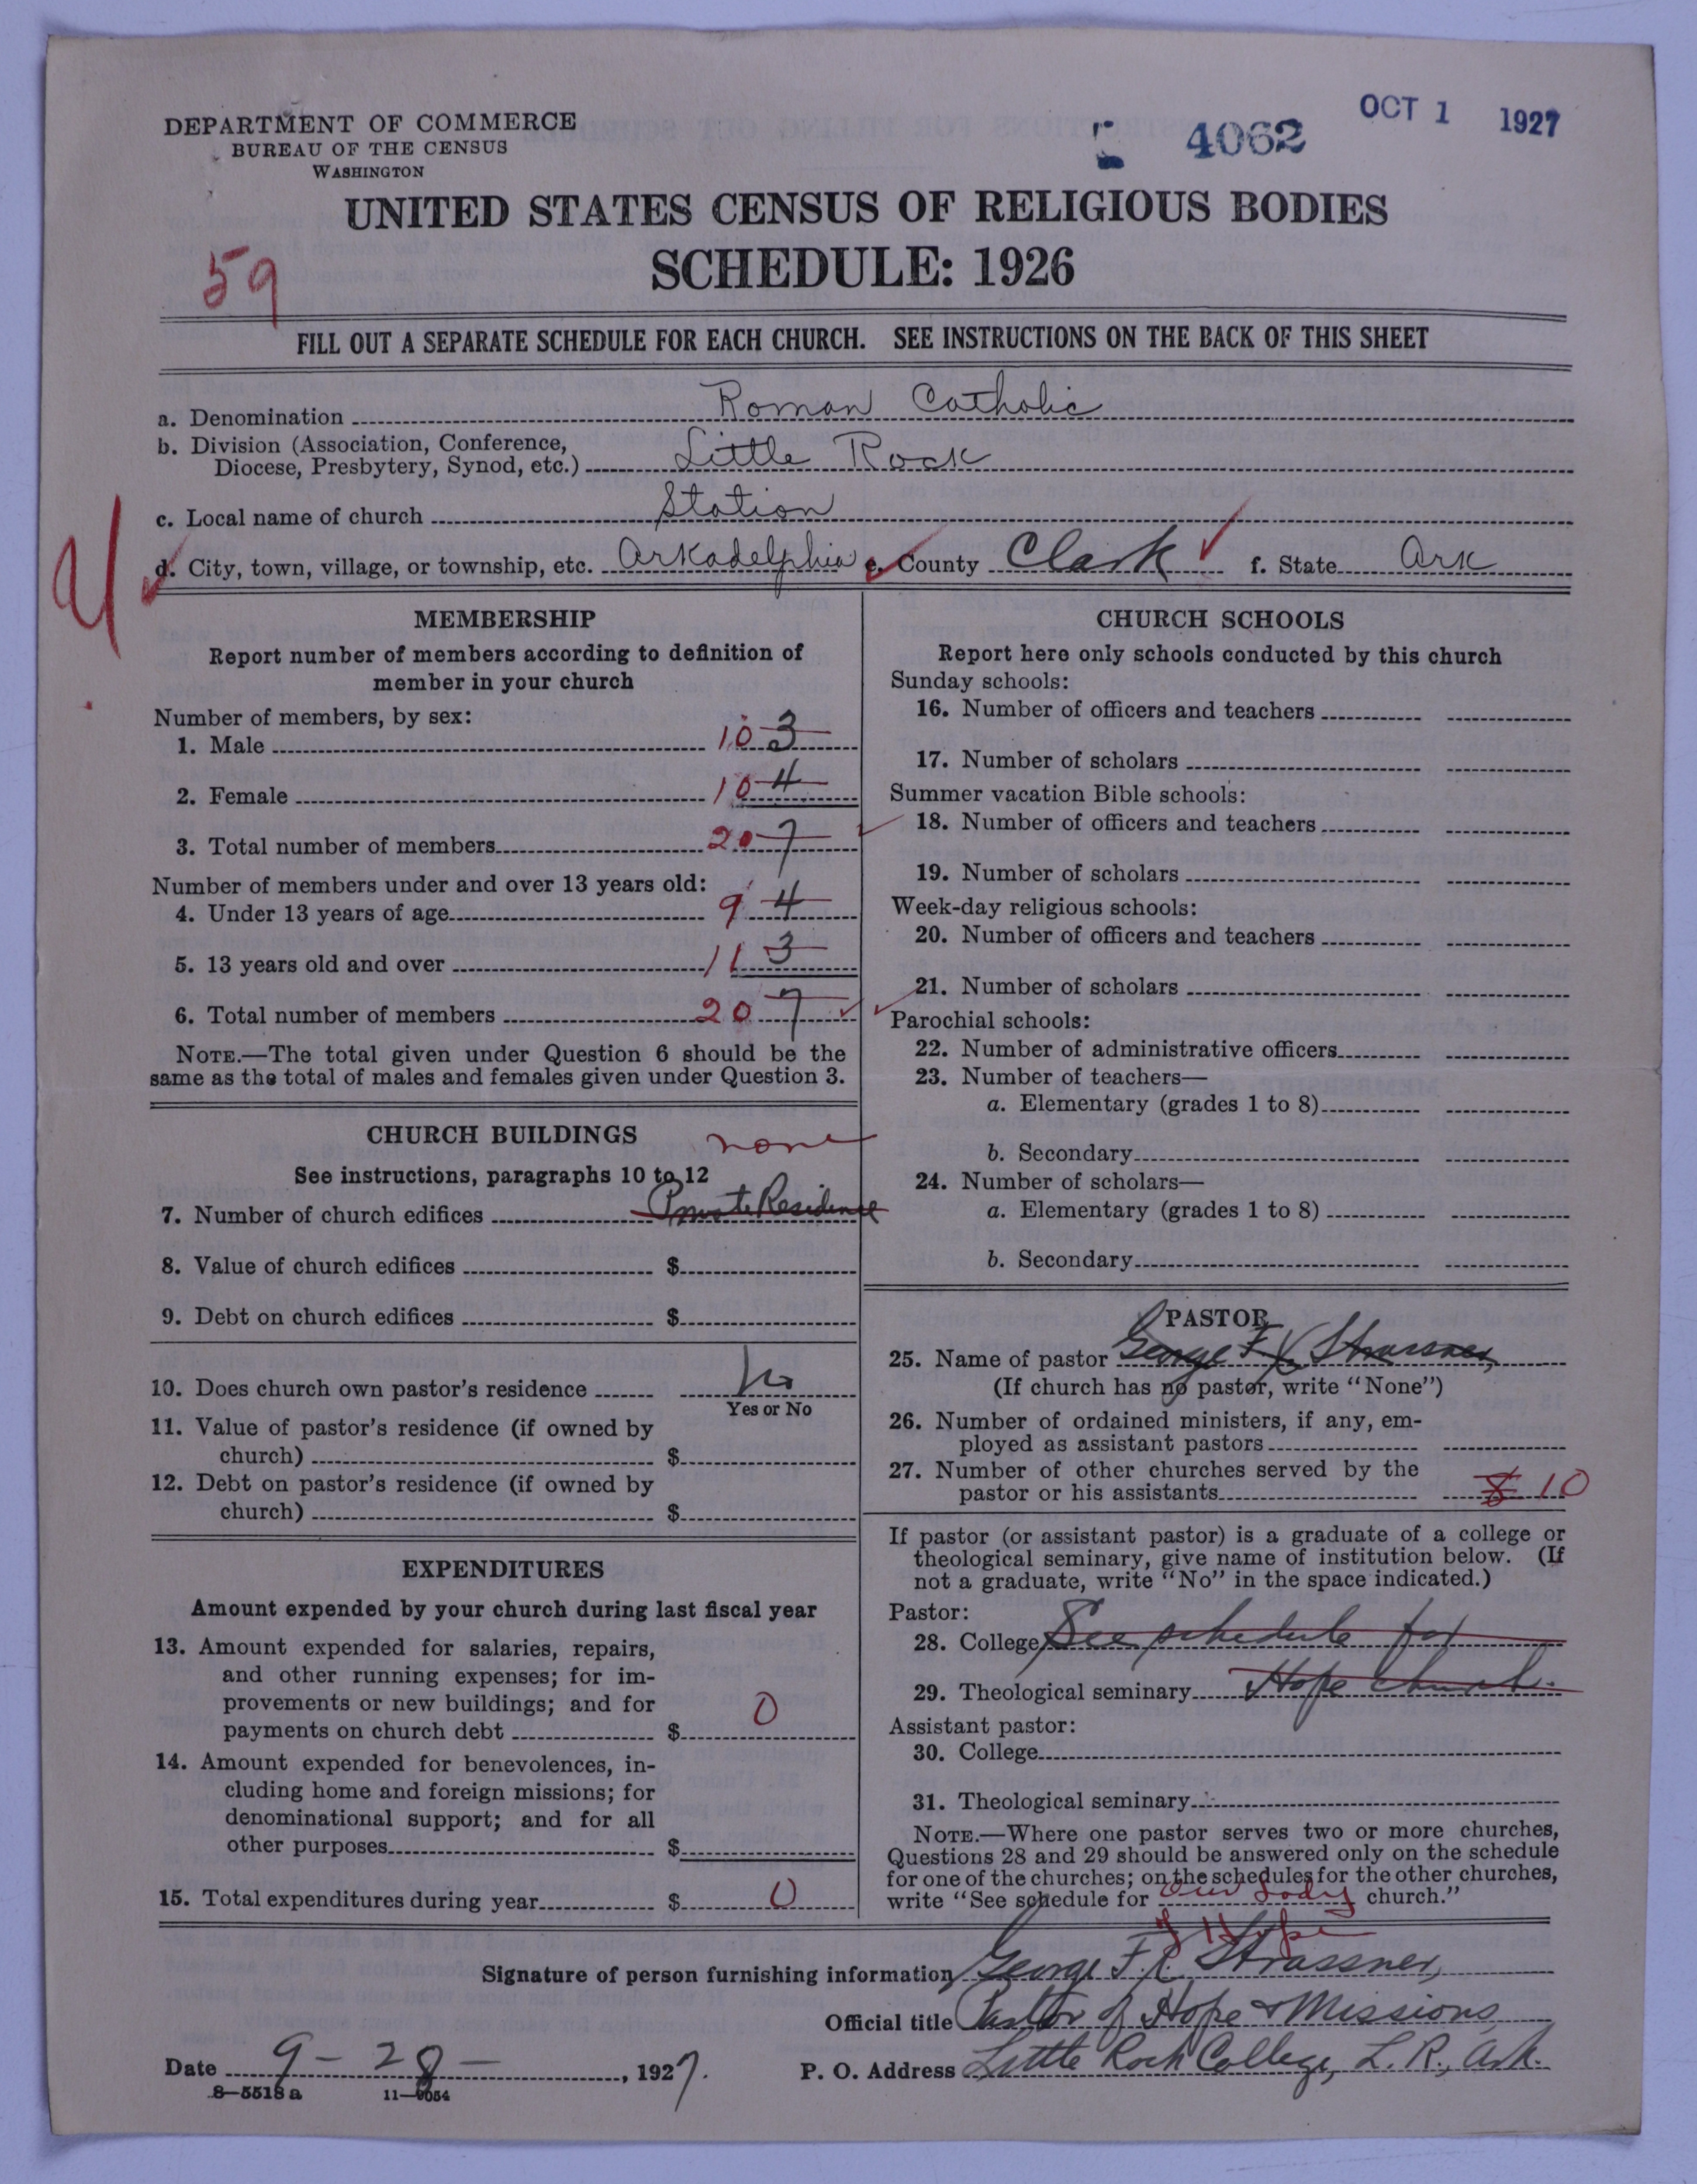 DEPARTMENT OF COMMERCE
BUREAU OF THE CENSUS
WASHINGTON
4062
OCT 1 1927
UNITED STATES CENSUS OF RELIGIOUS BODIES
SCHEDULE: 1926
59
FILL OUT A SEPARATE SCHEDULE FOR EACH CHURCH. SEE INSTRUCTIONS ON THE BACK OF THIS SHEET
a. Denomination Roman Catholic
b. Division (Association, Conference,
Diocese, Presbytery, Synod, etc.) Little Rock
c. Local name of church Station
d. City, town, village, or township, etc. Arkadelphia e. County Clark f. State Ark
MEMBERSHIP
Report number of members according to definition of
member in your church
Number of members, by sex:
1. Male 10 3
2. Female 10 4
3. Total number of members 20 7
Number of members under and over 13 years old:
4. Under 13 years of age 9 4
5. 13 years old and over 11 3
6. Total number of members 20 7
NOTE.—The total given under Question 6 should be the
same as the total of males and females given under Question 3.
CHURCH BUILDINGS
none
See instructions, paragraphs 10 to 12
7. Number of church edifices Private Residence
8. Value of church edifices $
9. Debt on church edifices $
10. Does church own pastor's residence No
Yes or No
11. Value of pastor's residence (if owned by
church) $
12. Debt on pastor's residence (if owned by
church) $
EXPENDITURES
Amount expended by your church during last fiscal year
13. Amount expended for salaries, repairs,
and other running expenses; for im-
provements or new buildings; and for
payments on church debt $ 0
14. Amount expended for benevolences, in-
cluding home and foreign missions; for
denominational support; and for all
other purposes $
15. Total expenditures during year $ 0
CHURCH SCHOOLS
Report here only schools conducted by this church
Sunday schools:
16. Number of officers and teachers
17. Number of scholars
Summer vacation Bible schools:
18. Number of officers and teachers
19. Number of scholars
Week-day religious schools:
20. Number of officers and teachers
21. Number of scholars
Parochial schools:
22. Number of administrative officers
23. Number of teachers—
a. Elementary (grades 1 to 8)
b. Secondary
24. Number of scholars—
a. Elementary (grades 1 to 8)
b. Secondary
PASTOR
25. Name of pastor George F. X. Strassner,
(If church has no pastor, write "None")
26. Number of ordained ministers, if any, em-
ployed as assistant pastors
27. Number of other churches served by the
pastor or his assistants 8 10
If pastor (or assistant pastor) is a graduate of a college or
theological seminary, give name of institution below. (If
not a graduate, write "No" in the space indicated.)
Pastor:
28. College See schedule for
29. Theological seminary Hope church.
Assistant pastor:
30. College
31. Theological seminary
NOTE.—Where one pastor serves two or more churches,
Questions 28 and 29 should be answered only on the schedule
for one of the churches; on the schedules for the other churches,
write "See schedule for Our Lady church."
of Hope
Signature of person furnishing information George F. X. Strassner,
Official title Pastor of Hope & Missions
Date 9-28-, 1927. P. O. Address Little Rock College, L. R., Ark.
8—5518 a 11—9054